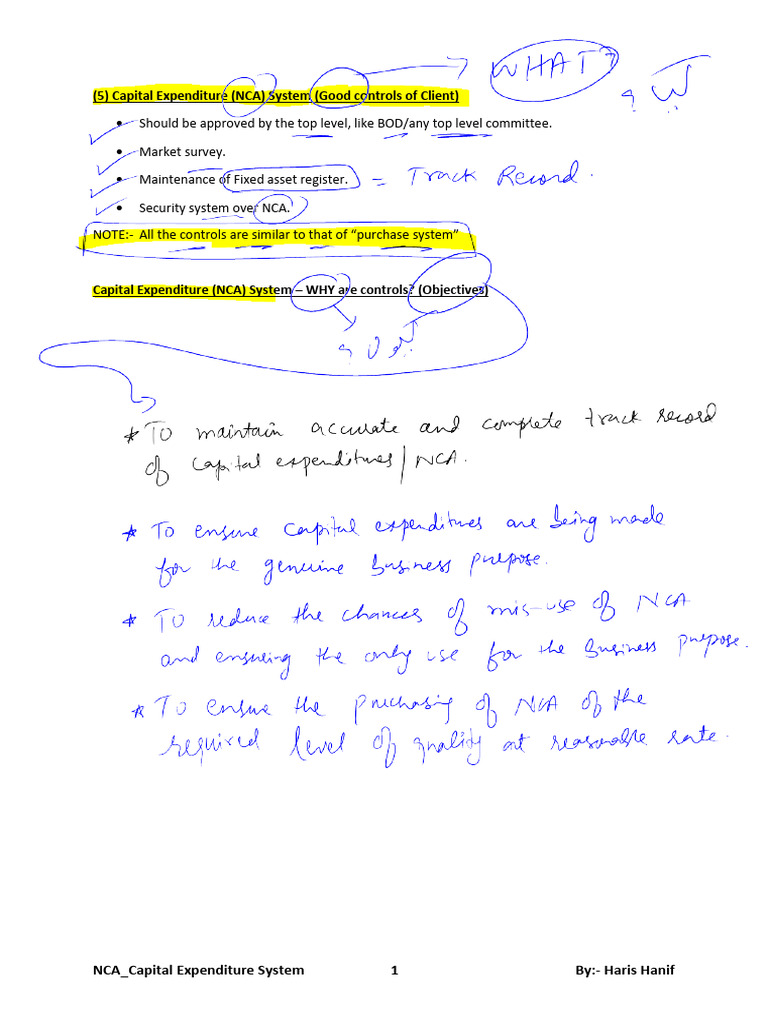 WHAT?
کیا ؟
(5) Capital Expenditure (NCA) System (Good controls of Client)
• Should be approved by the top level, like BOD/any top level committee.
• Market survey.
• Maintenance of Fixed asset register. = Track Record.
• Security system over NCA.
NOTE:- All the controls are similar to that of “purchase system”
Capital Expenditure (NCA) System – WHY are controls? (Objectives)
کیوں ؟
* To maintain accurate and complete track record
of capital expenditures/NCA.
* To ensure capital expenditures are being made
for the genuine business purpose.
* To reduce the chances of mis-use of NCA
and ensuring the only use for the business purpose.
* To ensure the purchasing of NCA of the
required level of quality at reasonable rate.
NCA_Capital Expenditure System 1 By:- Haris Hanif